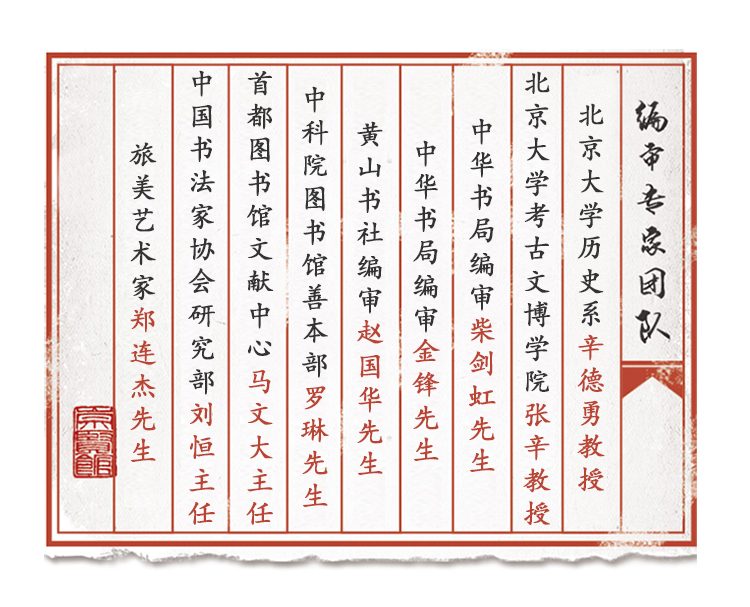 编审专家团队
北京大学历史系辛德勇教授
北京大学考古文博学院张辛教授
中华书局编审柴剑虹先生
中华书局编审金锋先生
黄山书社编审赵国华先生
中科院图书馆善本部罗琳先生
首都图书馆文献中心马文大主任
中国书法家协会研究部刘恒主任
旅美艺术家郑连杰先生